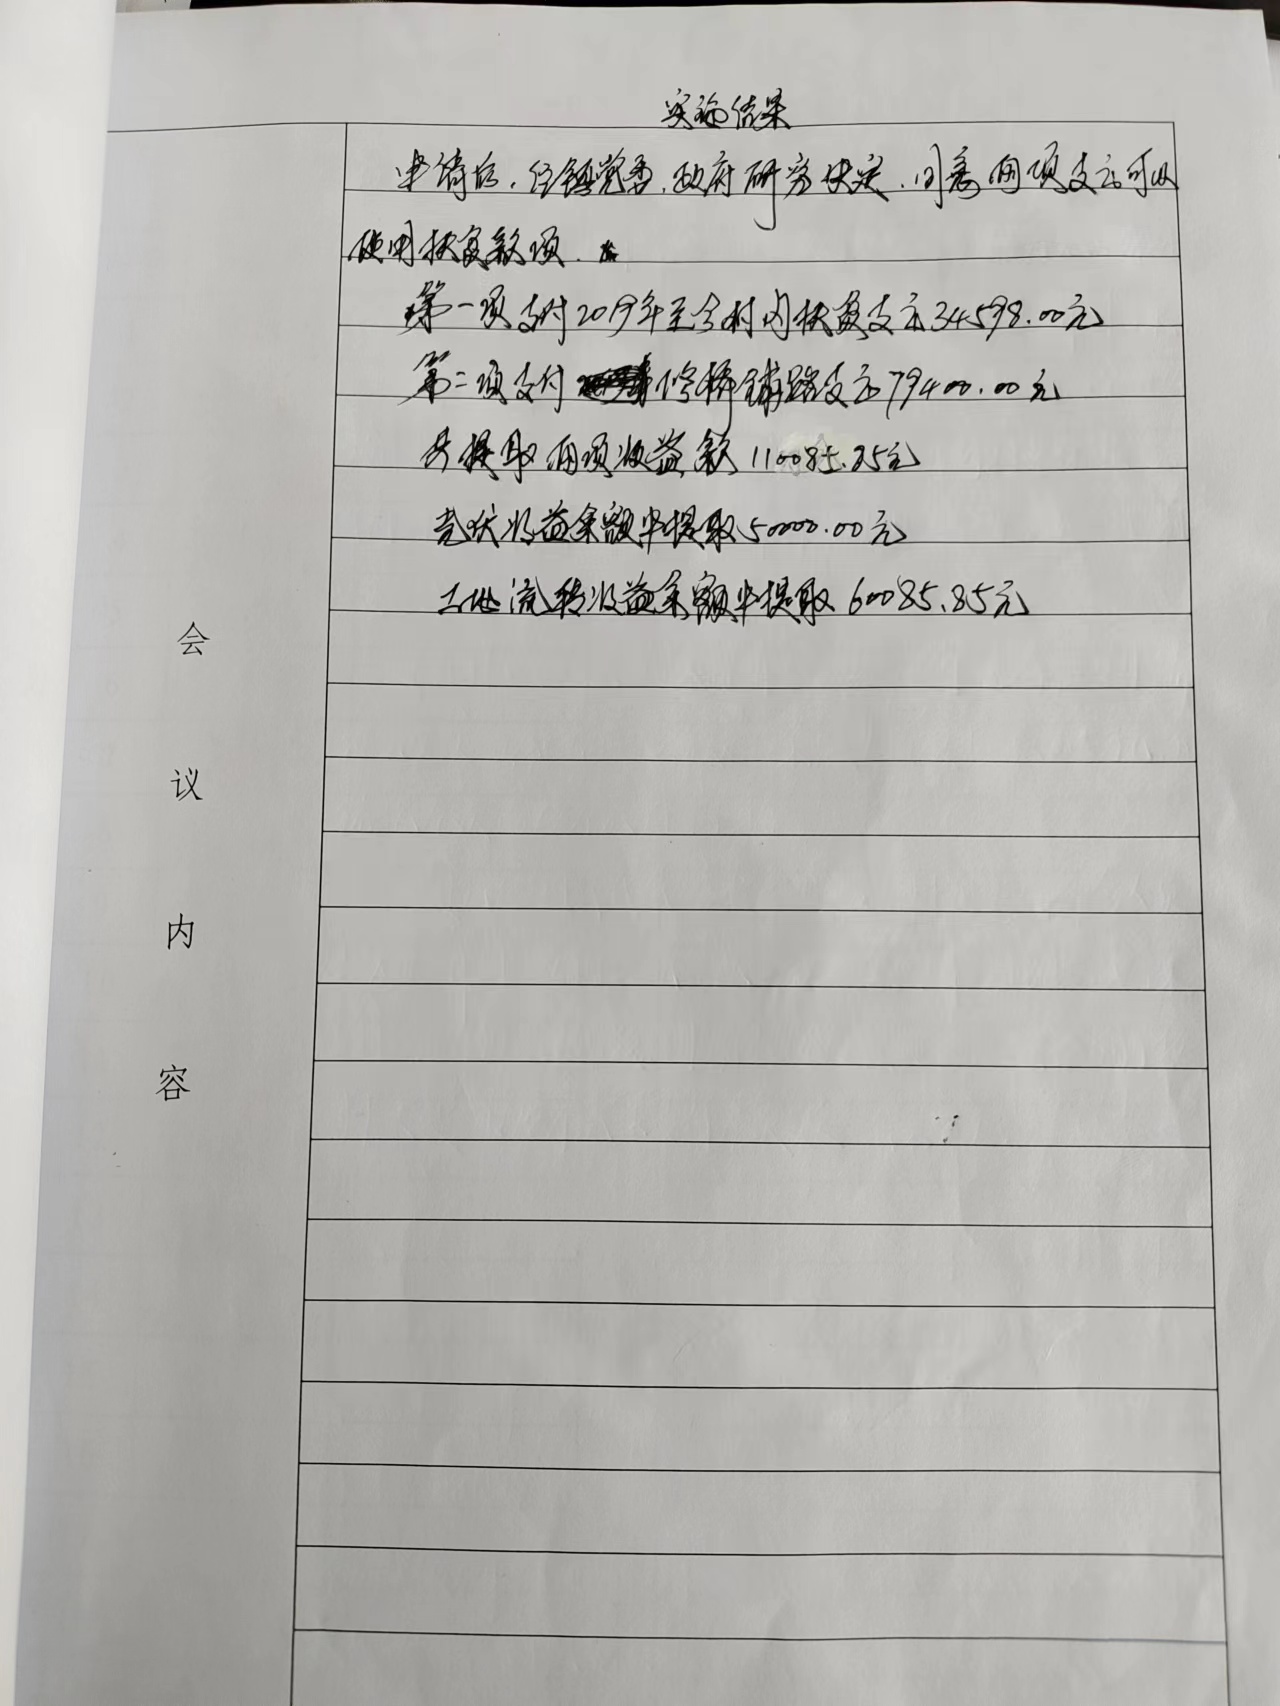 实施结果
申请后，经镇党委、政府研究决定，同意两项支出可以
使用扶贫款项.
第一项支付2019年至今村内扶贫支出34598.00元
第二项支付修桥铺路支出79400.00元
共提取两项收益款110085.85元
光伏收益余额中提取50000.00元
土地流转收益余额中提取60085.85元
会
议
内
容